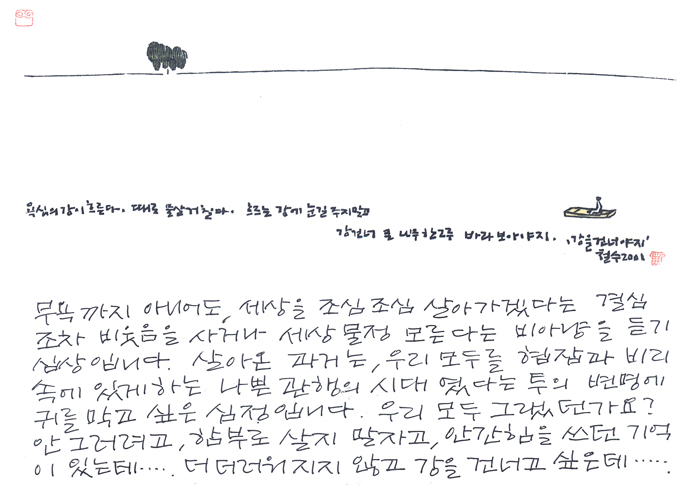 욕심의 강이 흐른다. 때로 물살 거칠다. 흐르는 강에 눈길 주지 말고
강 건너 편 나무 한 그루 바라보아야지. '강을 건너야지'
철수 2001
무욕 까지 아니어도, 세상을 조심조심 살아가겠다는 결심
조차 비웃음을 사거나 세상 물정 모른다는 비아냥을 듣기
십상입니다. 살아온 과거는, 우리 모두를 협잡과 비리
속에 있게하는 나쁜 관행의 시대 였다는 투의 변명에
귀를 막고 싶은 심정입니다. 우리 모두 그랬던가요?
안 그러려고, 함부로 살지 말자고, 안간힘을 쓰던 기억
이 있는데..... 더 더러워지지 않고 강을 건너고 싶은데.....